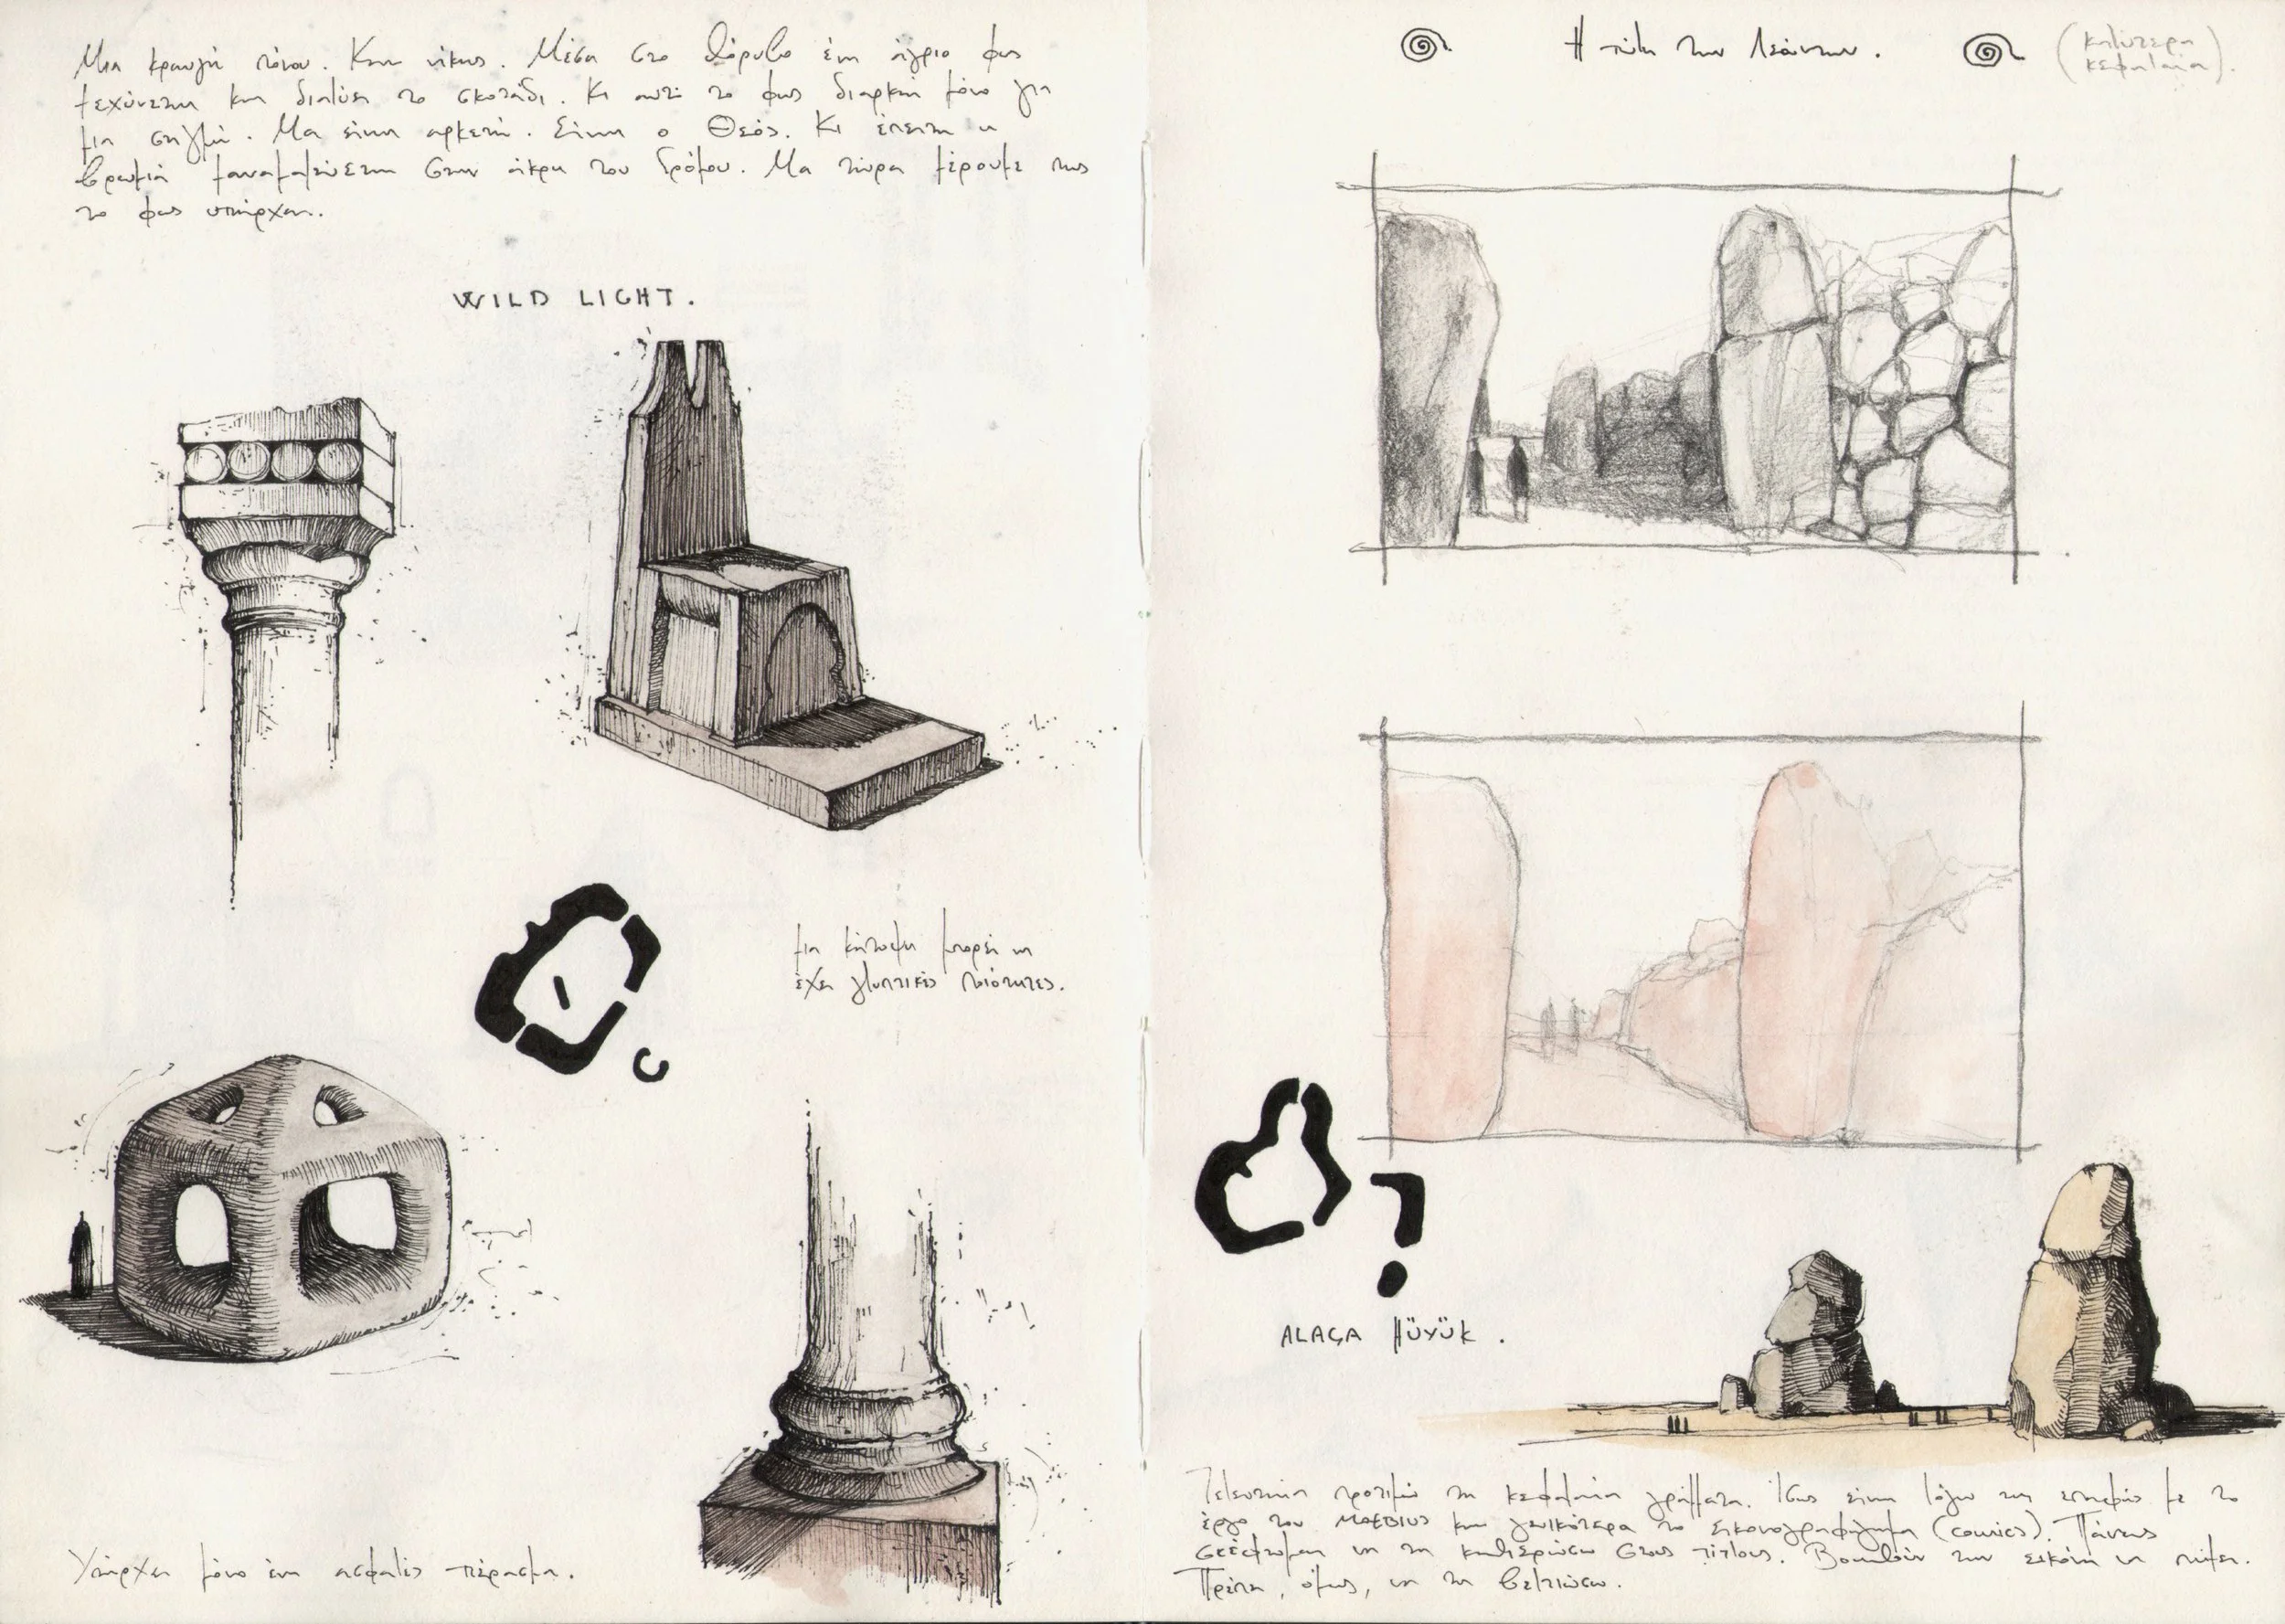 Μια κραυγή πόνου. Και νίκης. Μέσα στο θόρυβο ένα άγριο φως
ξεχύνεται και διαλύει το σκοτάδι. Κι αυτό το φως διαρκεί μόνο για
μια στιγμή. Μα είναι αρκετή. Είναι ο Θεός. Κι έπειτα η
βρωμιά ξαναμαζεύεται στην άκρη του δρόμου. Μα τώρα ξέρουμε πως
το φως υπάρχει.
WILD LIGHT.
μια κάτοψη μπορεί να
έχει γλυπτικές ποιότητες.
Υπάρχει μόνο ένα ασφαλές πέρασμα.
Η πύλη των Λεόντων.
(καλύτερα
κεφαλαία).
ALAÇA HÜYÜK.
Τελευταία προτιμώ τα κεφαλαία γράμματα. Ίσως είναι λόγω της επαφής με το
έργο του MOEBIUS και γενικότερα το εικονογραφήγημα (comics). Πάντως
σκέφτομαι να τα καθιερώσω στους τίτλους. Βοηθούν την εικόνα να
Πρέπει, όμως, να τα βελτιώσω.